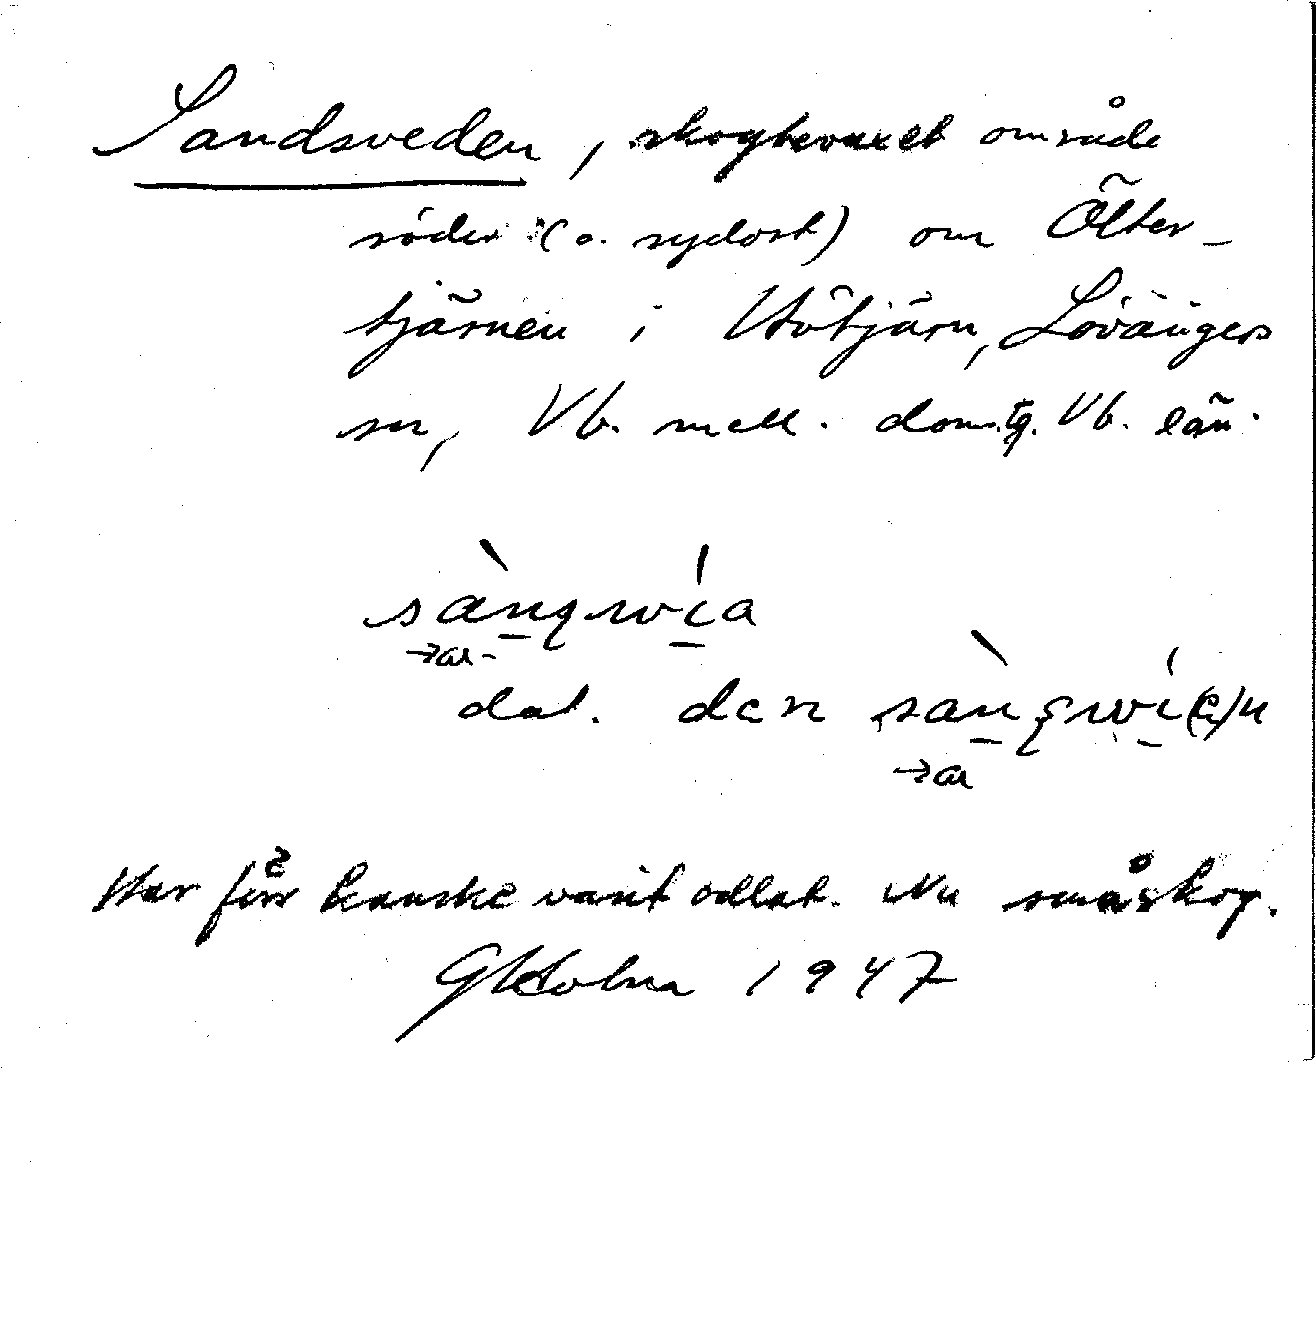 Sandsveden, skogbevuxet område
söder (o. sydost) om Älter-
tjärnen i Hötjärn, Lövångers
sn, Vb. mell. doms.tg. Vb. län.
sànswía
→a-
dat. den sànswí(e)n
→a
Har förr kanske varit odlat. Nu småskog.
GHolm 1947